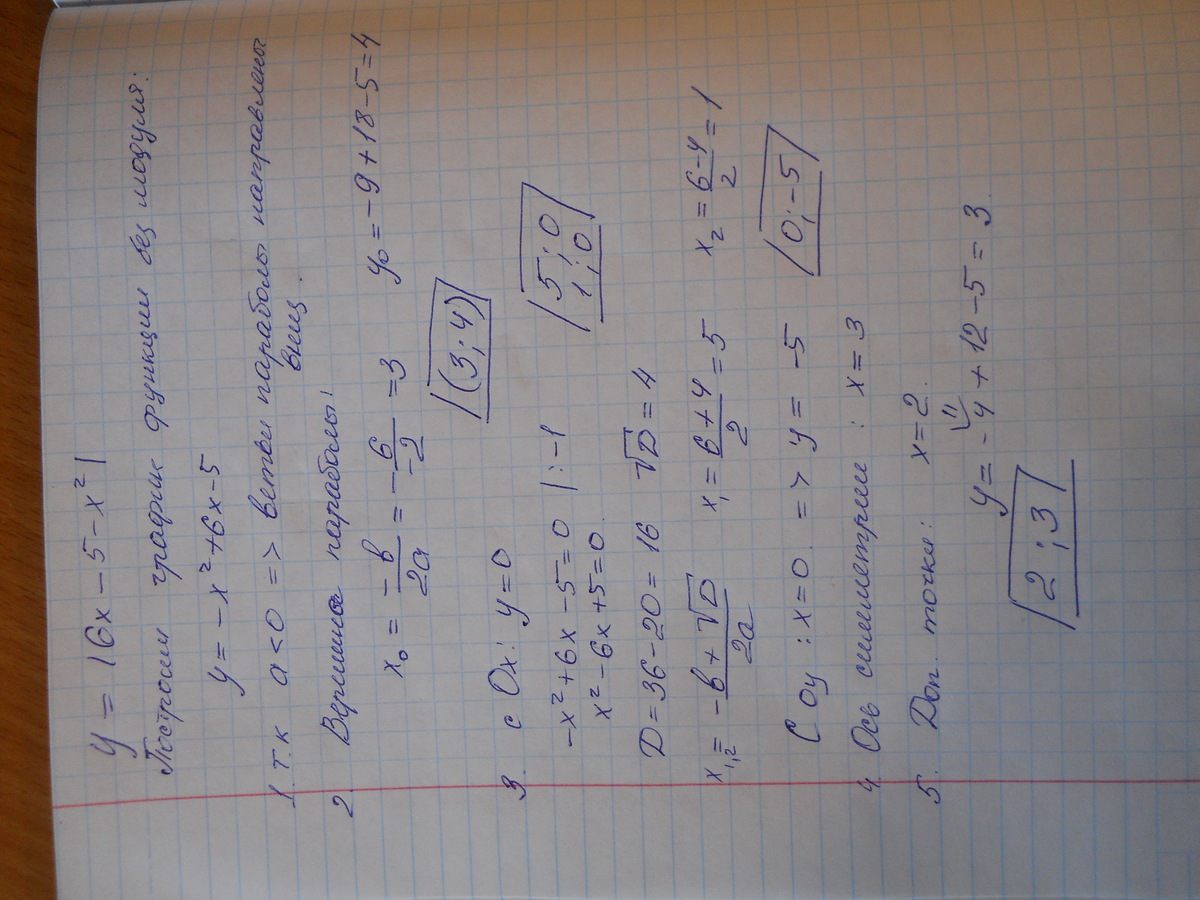 y = |6x - 5 - x²|
Построим график функции без модуля:
y = -x²+6x-5
1. т.к a<0 => ветви параболы направлены
вниз.
2. Вершина параболы:
x₀ = -b/2a = -6/-2 = 3 y₀ = -9+18-5=4
(3;4)
3. с Ox: y=0
-x²+6x-5=0 |:-1
x²-6x+5=0
5;0
1;0
D=36-20=16 √D=4
x₁,₂= -b+√D/2a x₁=6+4/2=5 x₂=6-4/2=1
С Oy: x=0 => y= -5
0;-5
4. Ось симметрии: x=3
5. Доп. точки: x=2.
y= -4+12-5=3.
2;3